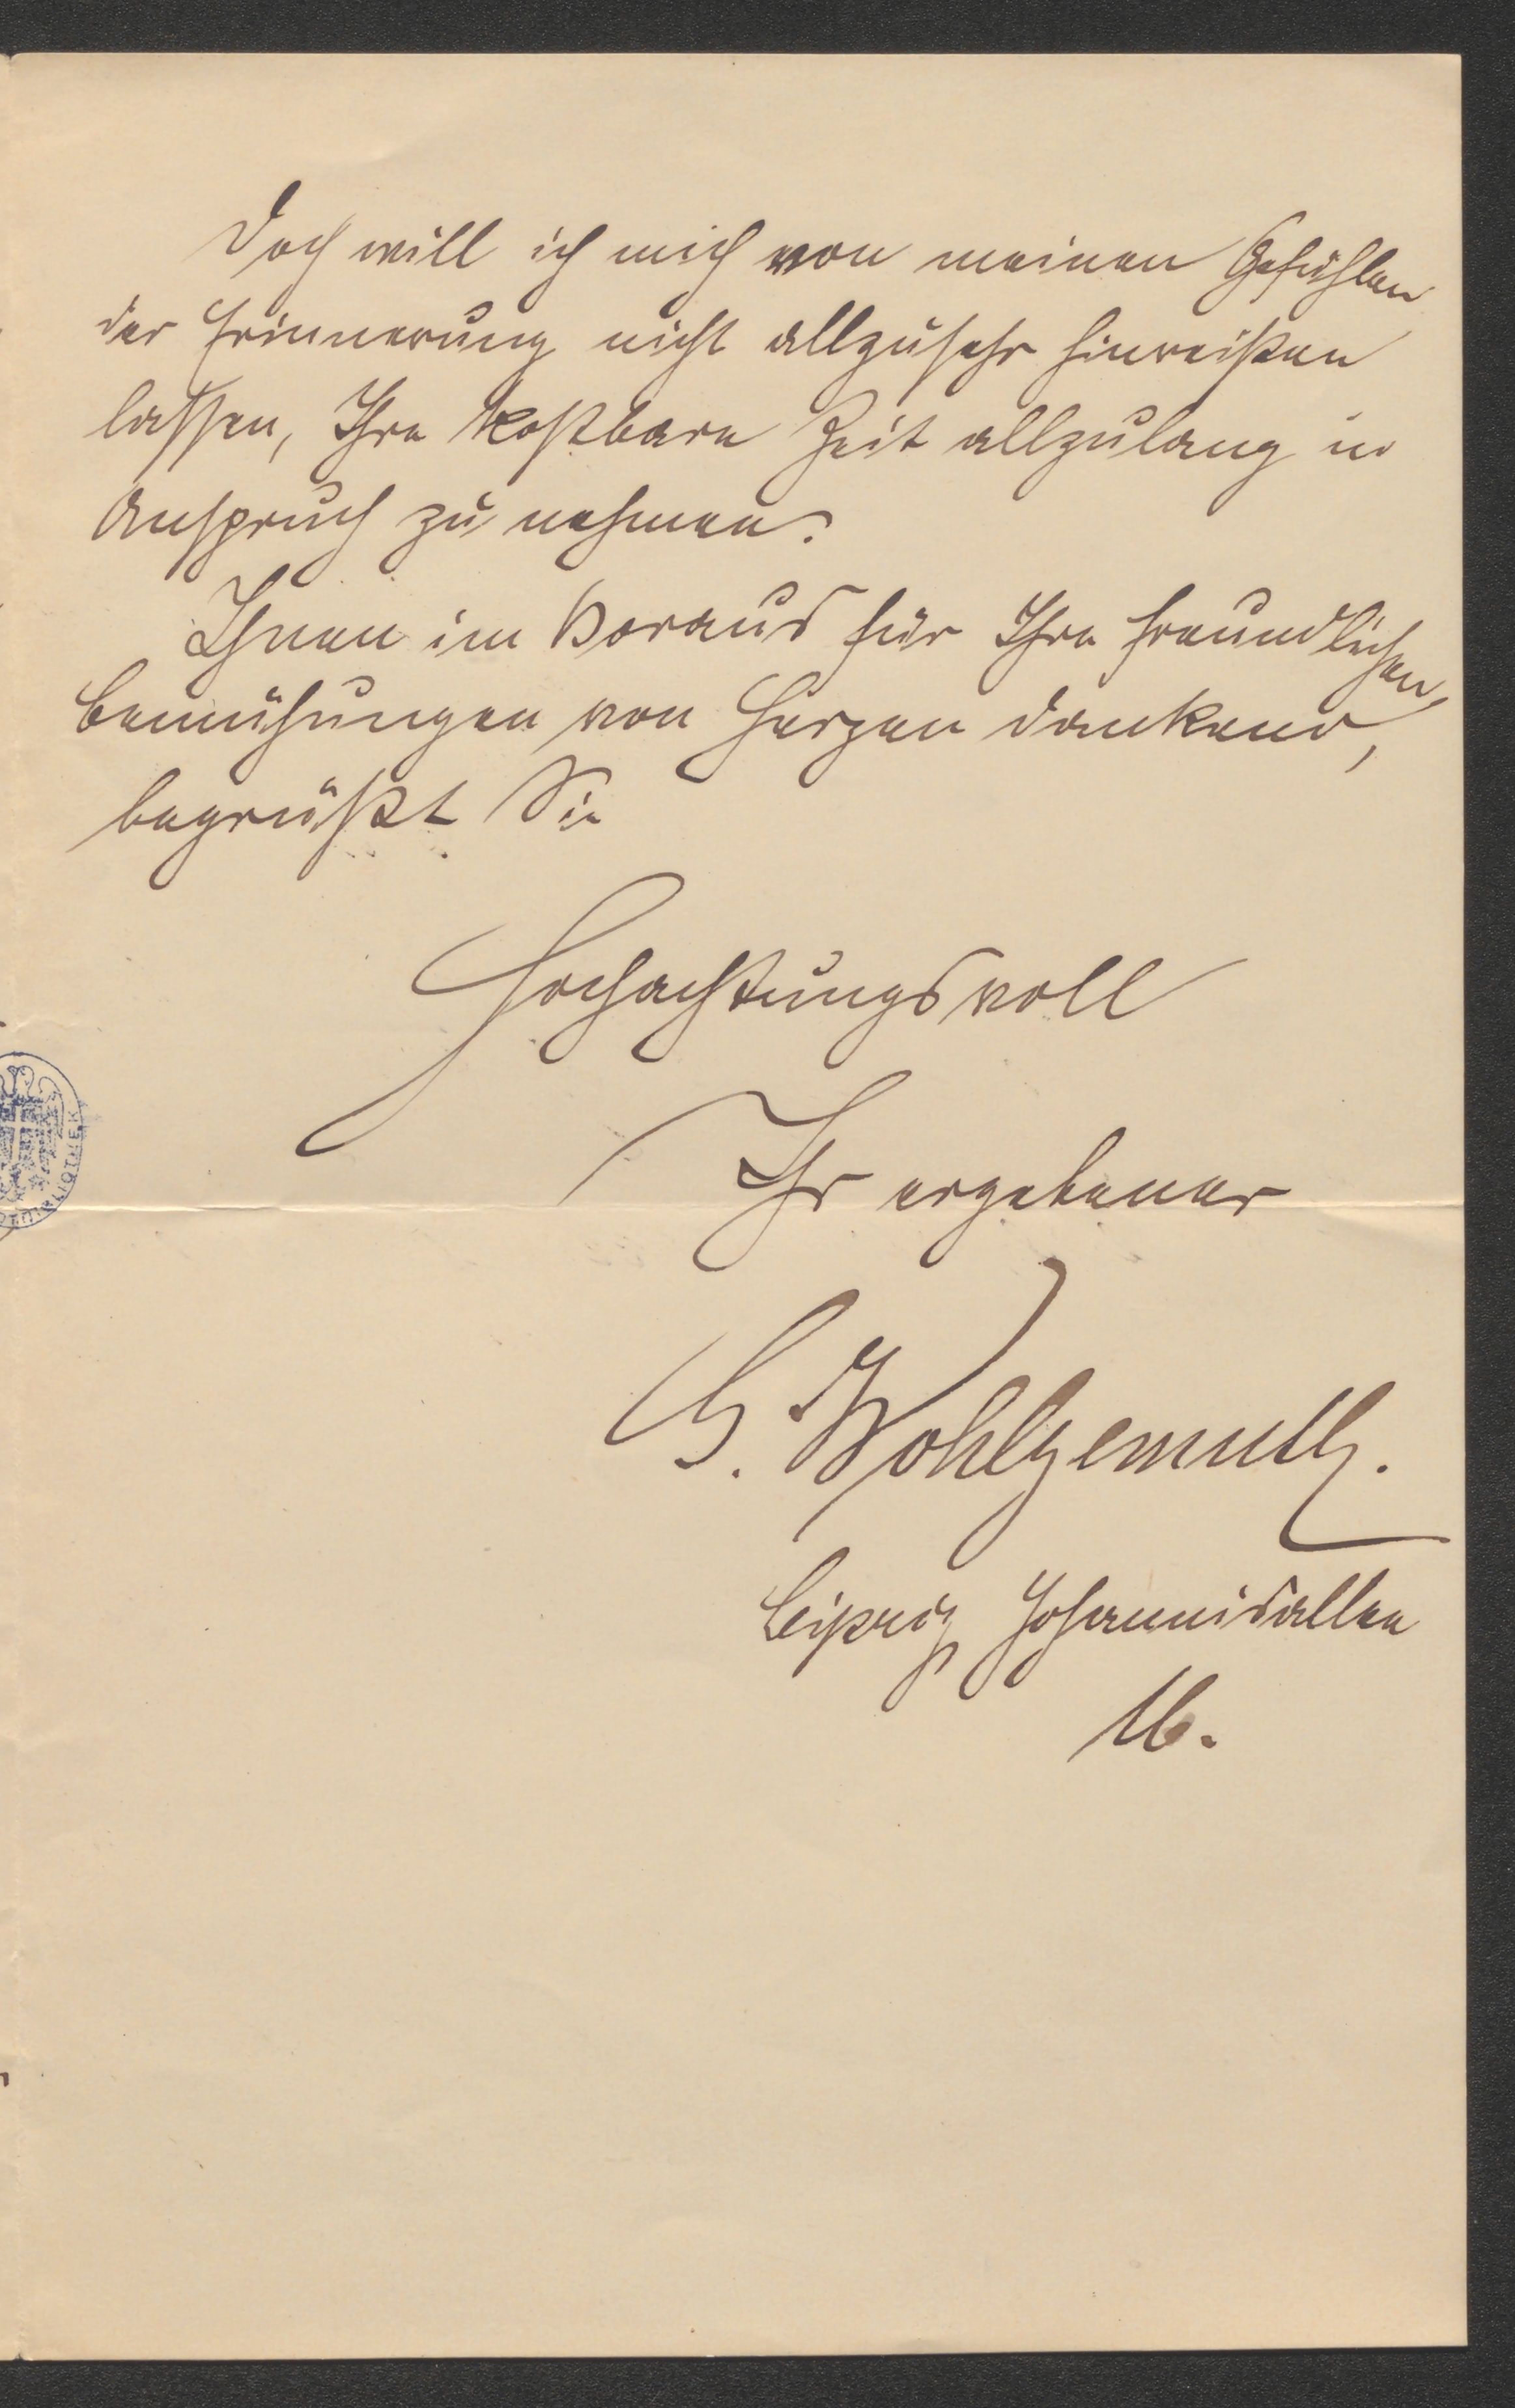 Doch will ich mich von meinen Gefühlen
der Erinnerung nicht allzusehr hinreißen
lassen, Ihre kostbare Zeit allzulang in
Anspruch zu nehmen.
Ihnen im Voraus für Ihre freundlichen
Bemühungen von Herzen dankend,
begrüßt Sie
Hochachtungsvoll
Ihr ergebener
G. Wohlgemuth.
Leipzig Johannisallee
16.